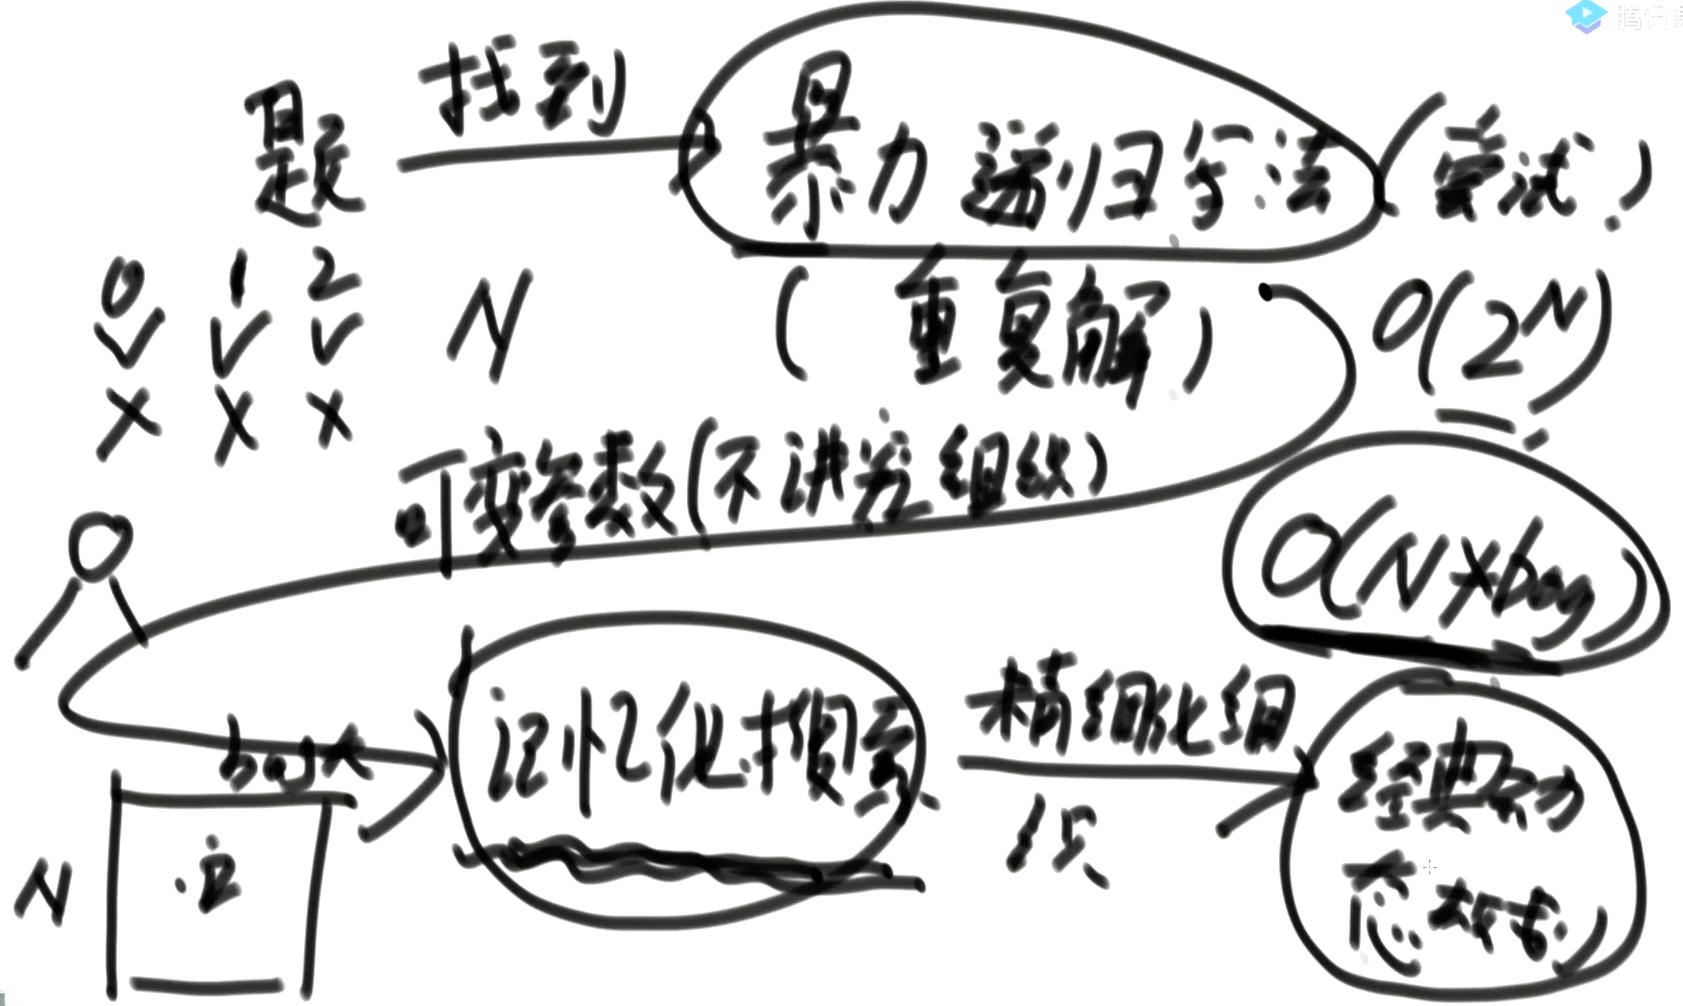 腾讯课
题 找到 暴力递归写法 (尝试)
0 1 2 N (重复解) O(2^N)
✓ ✓ ✓
× × ×
可变参数(不讲究组织)
O(N×bag)
bag大 记忆化搜索 精细化组织 经典动态规划
N